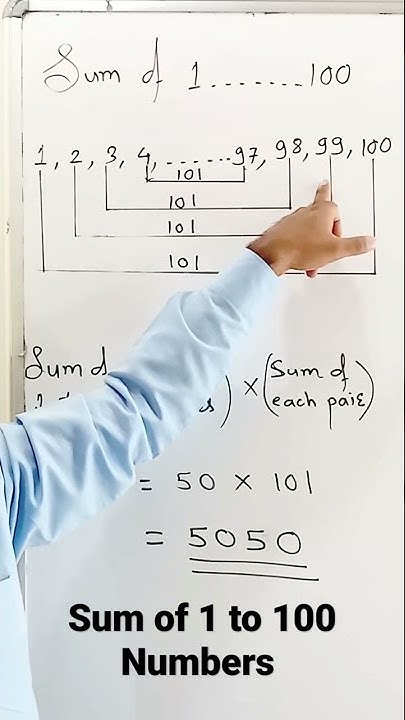 Sum of 1.......100
1, 2, 3, 4, .......97, 98, 99, 100
101
101
101
101
Sum of
) × (Sum of
each pair)
= 50 × 101
= 5050
Sum of 1 to 100
Numbers